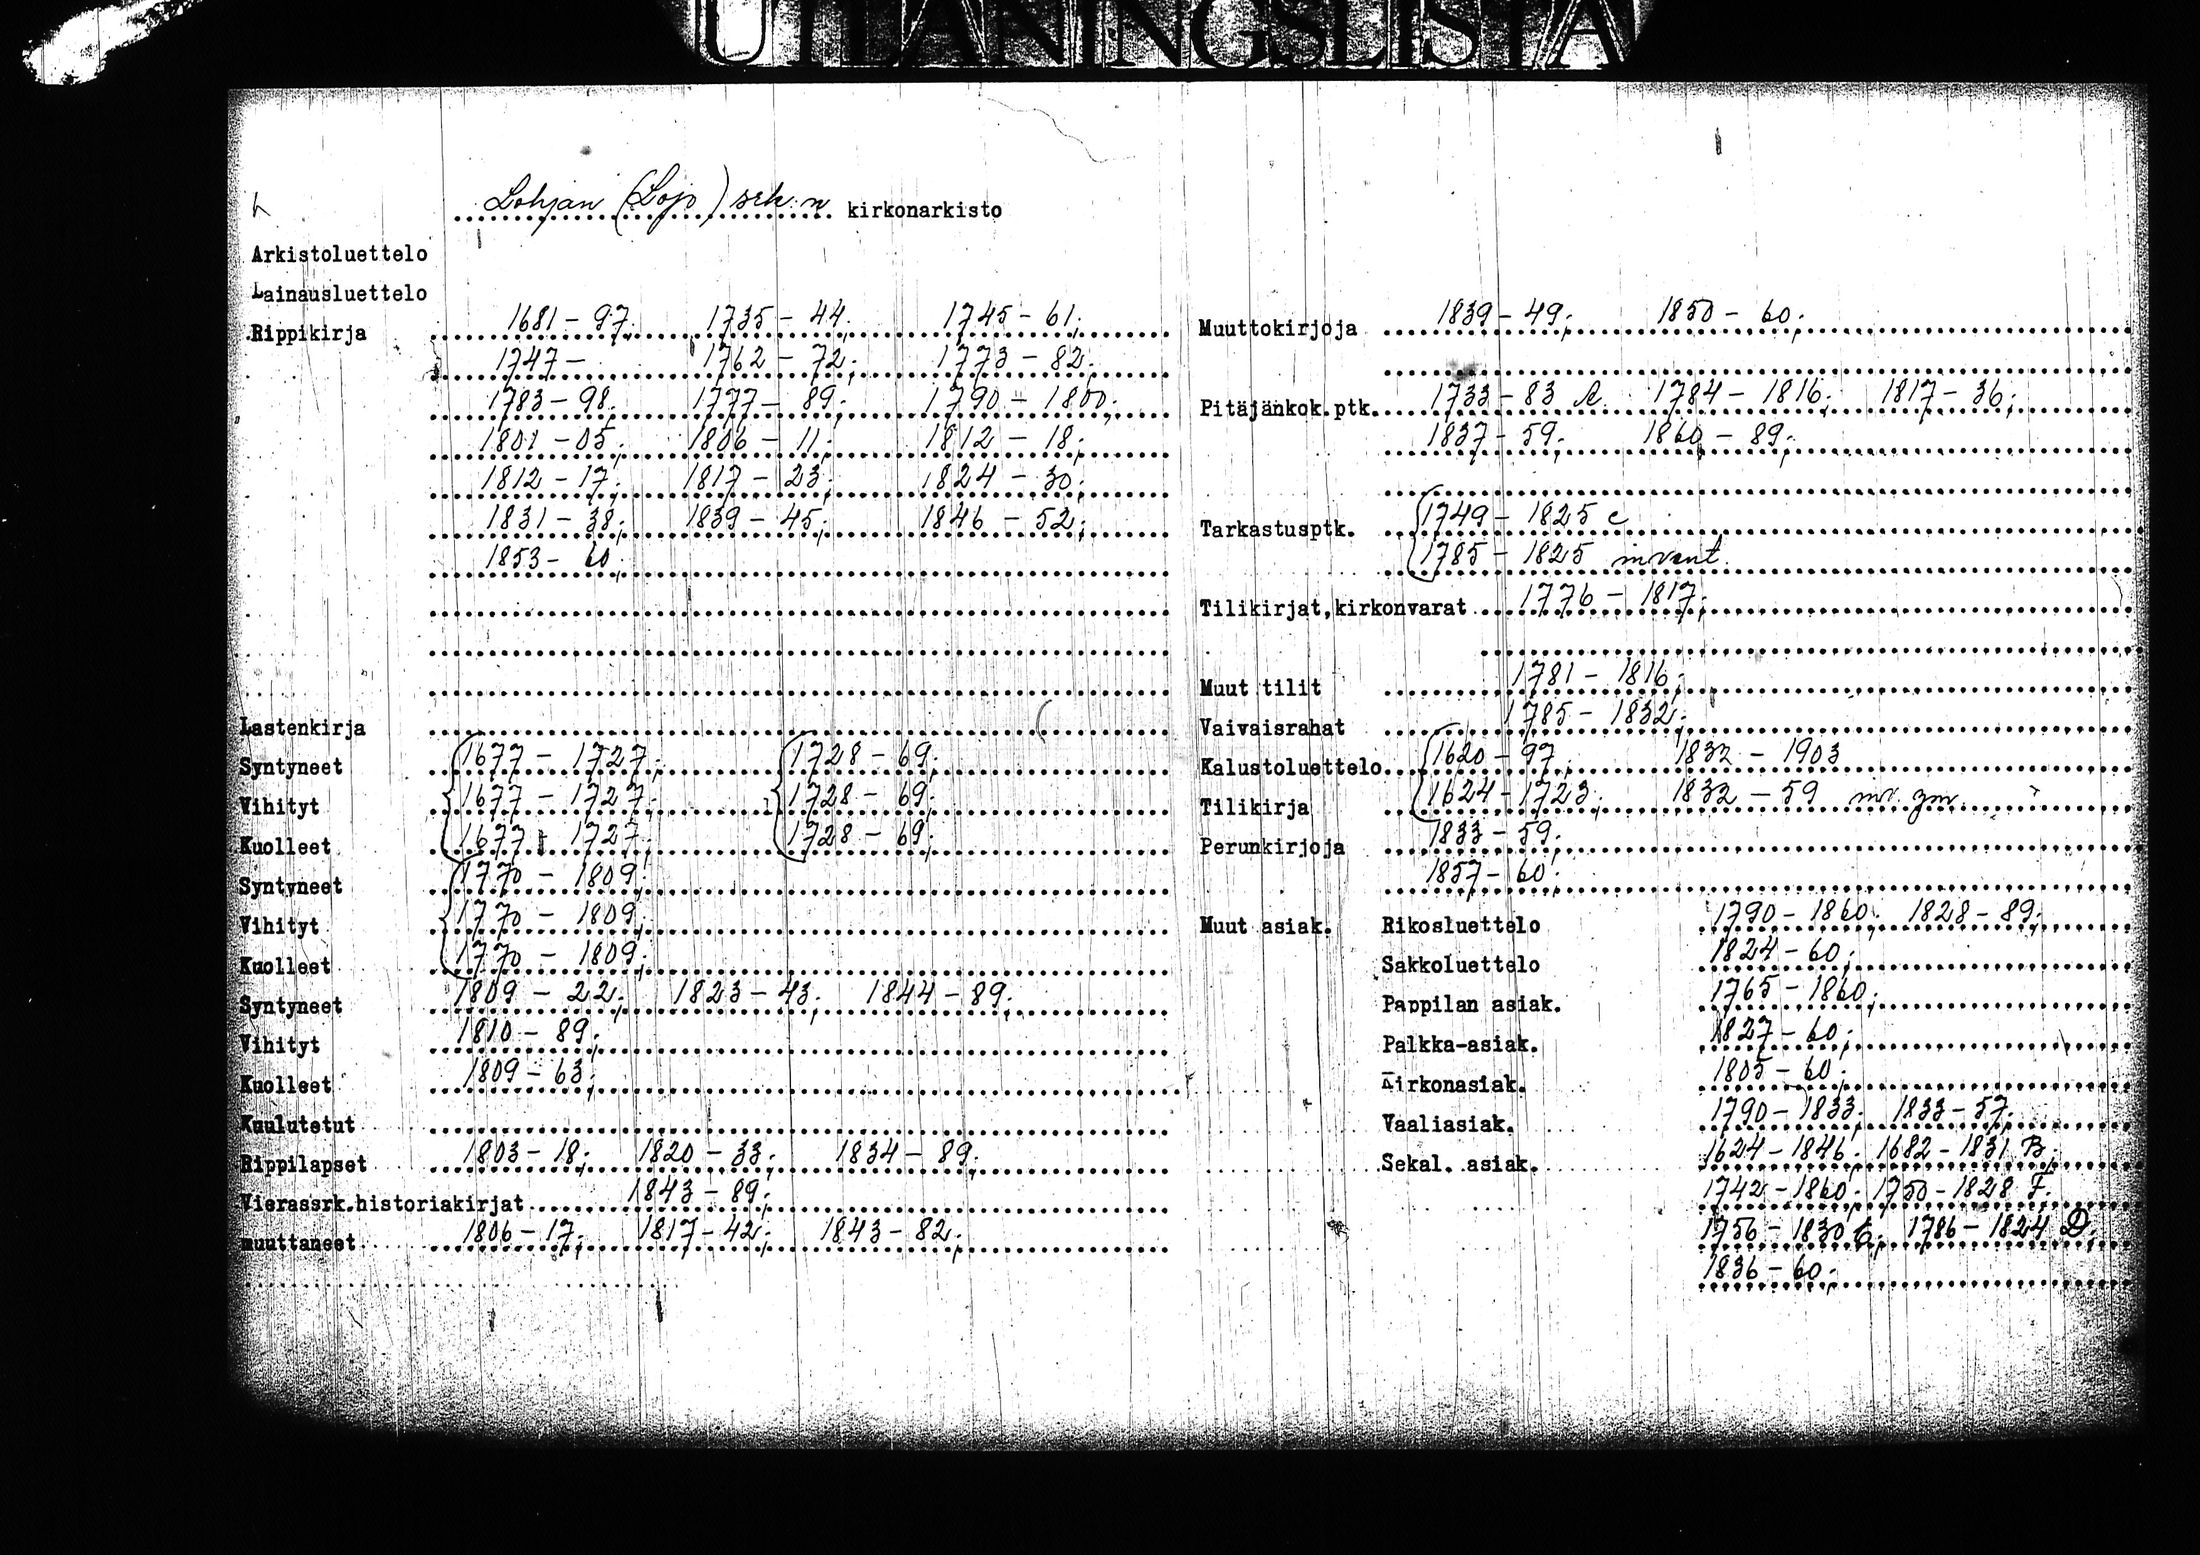 UTLÅNINGSLISTA
Lohjan (Lojo) srk:n kirkonarkisto
Arkistoluettelo
Lainausluettelo
Rippikirja 1681-97; 1735-44; 1745-61;
1747- 1762-72; 1773-82;
1783-98; 1777-89; 1790-1800;
1801-05; 1806-11; 1812-18;
1812-17; 1817-23; 1824-30;
1831-38; 1839-45; 1846-52;
1853-60;
Lastenkirja
Syntyneet 1677-1727; 1728-69;
Vihityt 1677-1727; 1728-69;
Kuolleet 1677-1727; 1728-69;
Syntyneet 1770-1809;
Vihityt 1770-1809;
Kuolleet 1770-1809;
Syntyneet 1809-22; 1823-43; 1844-89;
Vihityt 1810-89;
Kuolleet 1809-63;
Kuulutetut
Rippilapset 1803-18; 1820-33; 1834-89;
Vierassrk.historiakirjat 1843-89;
muuttaneet 1806-17; 1817-42; 1843-82;
Muuttokirjoja 1839-49; 1850-60;
Pitäjänkok.ptk. 1733-83 A. 1784-1816; 1817-36;
1837-59; 1860-89;
Tarkastusptk. 1749-1825 c
1785-1825 invent.
Tilikirjat,kirkonvarat 1776-1817;
Muut tilit 1781-1816;
Vaivaisrahat 1785-1832;
Kalustoluettelo 1620-97; 1832-1903
Tilikirja 1624-1723; 1832-59
Perunkirjoja 1833-59;
1857-60;
Muut asiak. Rikosluettelo 1790-1860; 1828-89;
Sakkoluettelo 1824-60;
Pappilan asiak. 1765-1860;
Palkka-asiak. 1827-60;
Kirkonasiak. 1805-60;
Vaaliasiak. 1790-1833; 1833-57;
Sekal. asiak. 1624-1846; 1682-1831 B;
1742-1860; 1750-1828 F.
1756-1830 E; 1786-1824 D;
1836-60;